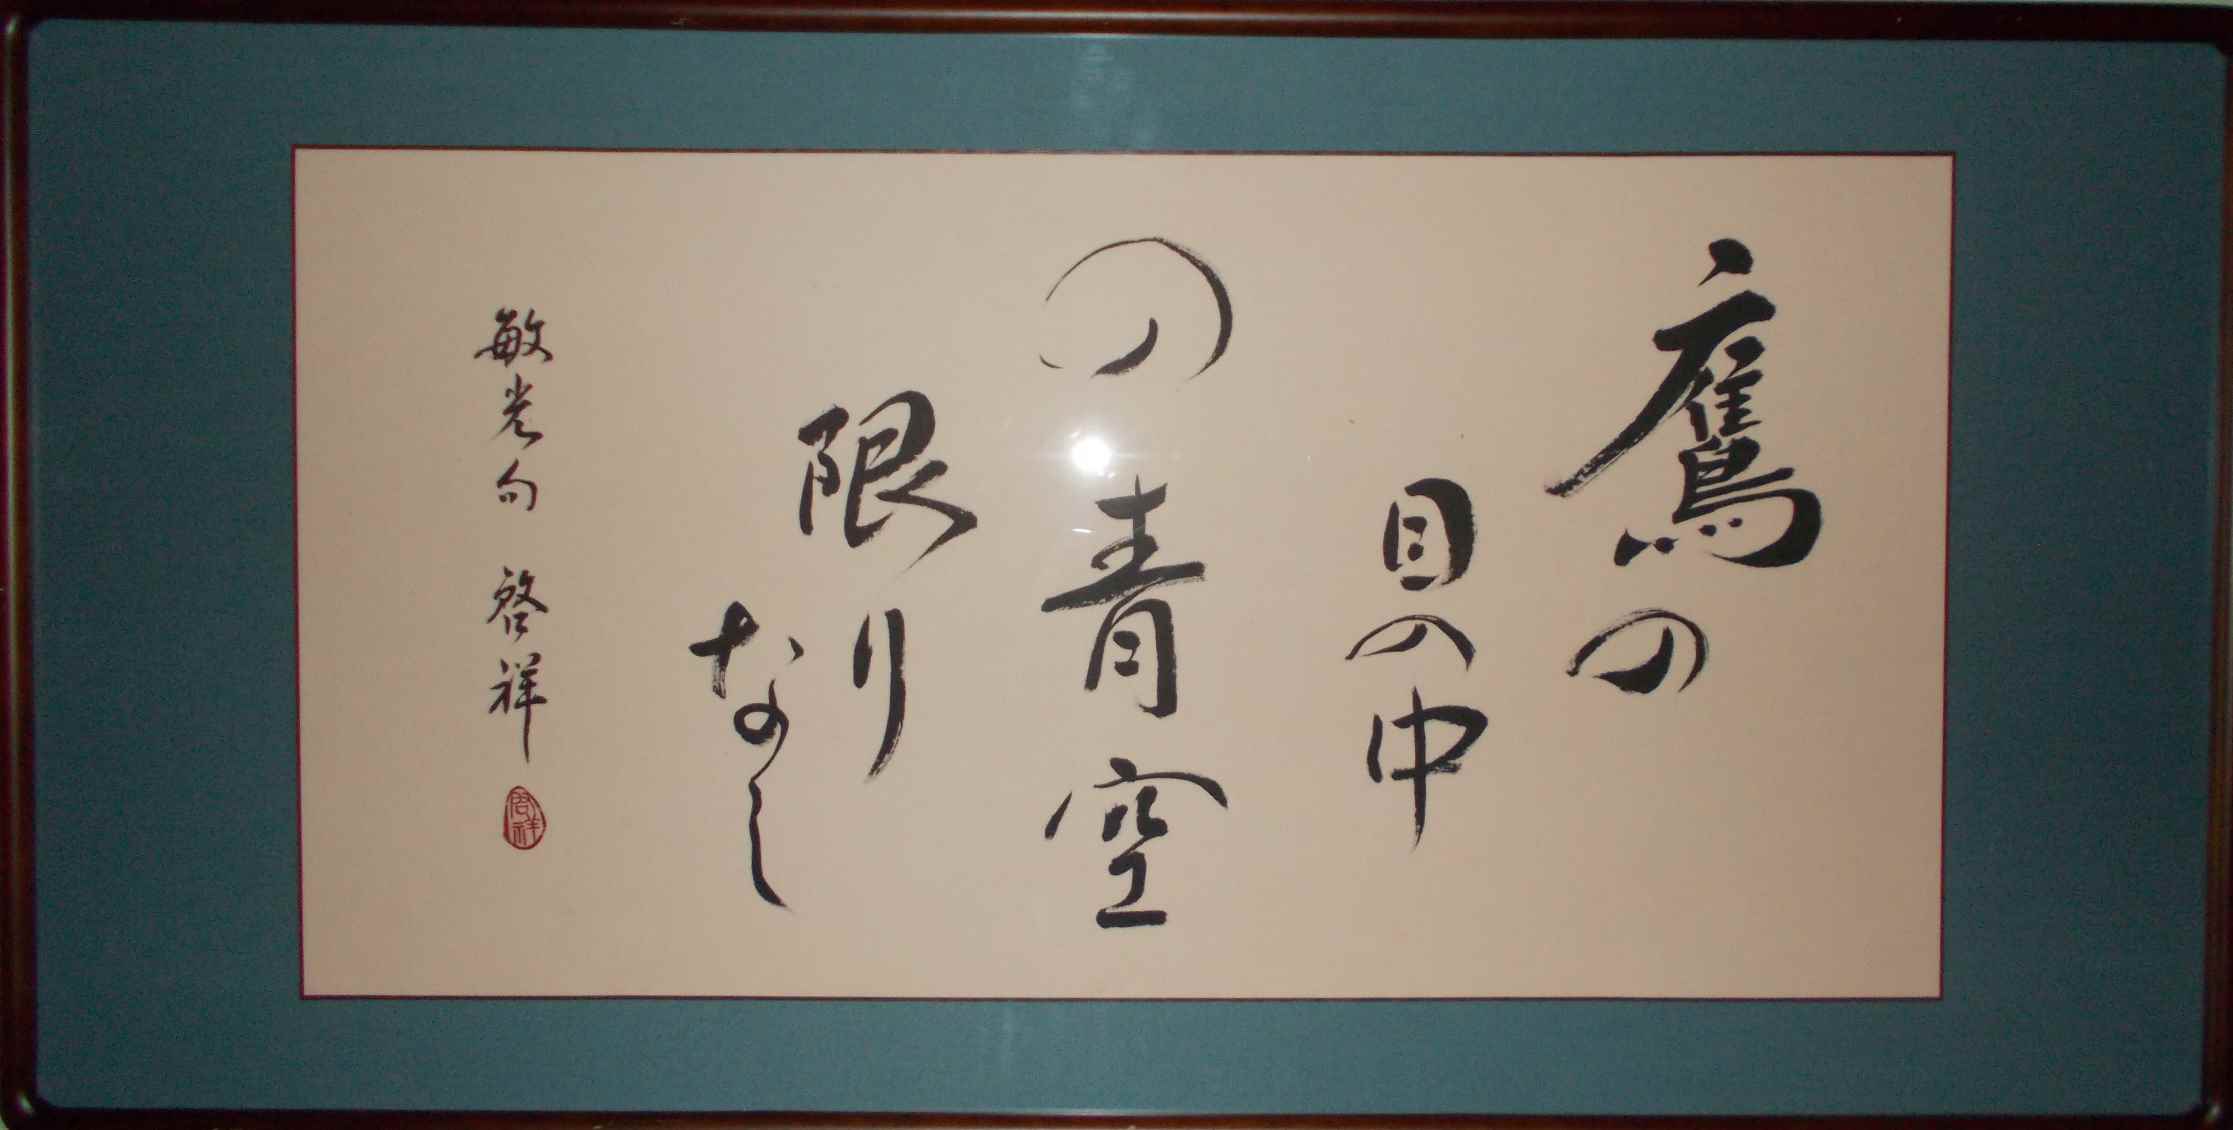 鷹の
目の中
の青空
限り
なし
敏光句 啓祥
啓祥